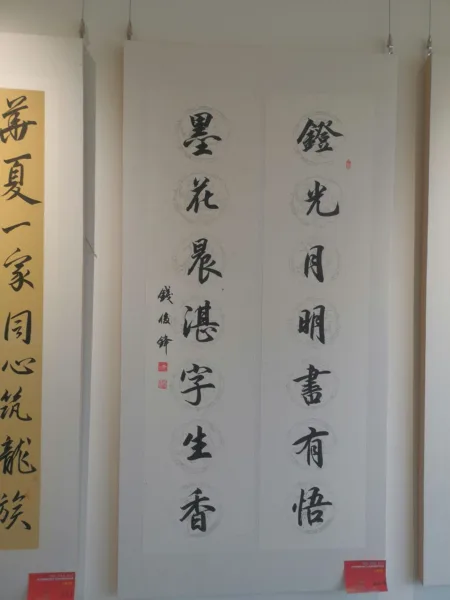 鐙光月明書有悟
墨花晨湛字生香
錢俊鋒
華夏一家同心筑龍族